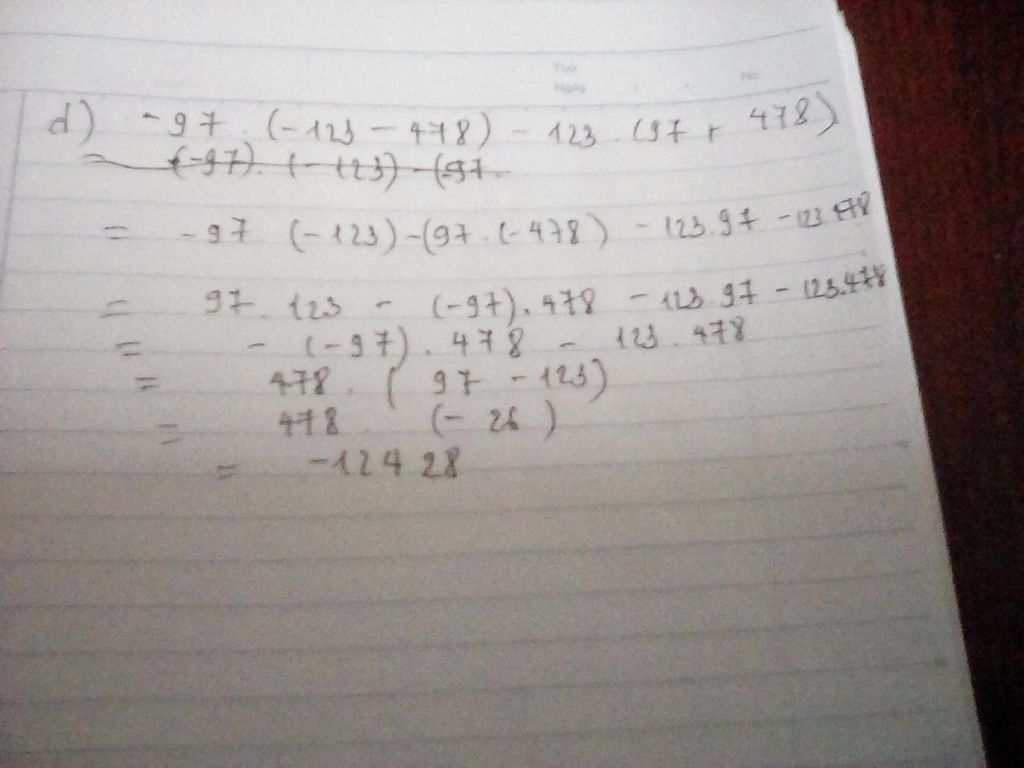 Thứ
Ngày No.
d) -97. (-123 - 478) - 123. (97 + 478)
= (-97). (-123) - (97.
= -97 (-123) - (97. (-478) - 123.97 - 123.478
= 97. 123 - (-97). 478 - 123.97 - 123.478
= - (-97). 478 - 123. 478
= 478. ( 97 - 123)
= 478 (- 26 )
= -12428